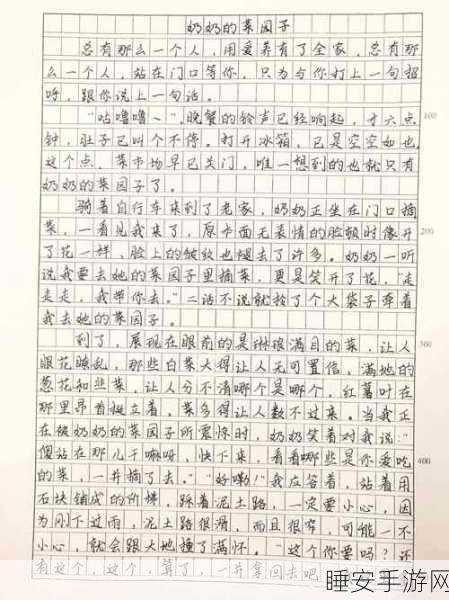 奶奶的菜园子
总有那么一个人，用爱养育了全家，总有那
么一个人，站在门口等你，只为与你打上一句招
呼，跟你说上一句话。
“咕噜噜～”，晚餐的铃声已经响起，才六点
100
钟，肚子已叫个不停。打开冰箱，已是空空如也，
这个点，菜市场早已关门，唯一想到的也就只有
奶奶的菜园子了。
骑着自行车来到了老家，奶奶正坐在门口摘
菜，一看见我来了，原本面无表情的脸顿时像开
200
了花一样，脸上的皱纹也褪去了许多。奶奶一听
说我要去她的菜园子里摘菜，更是笑开了花，“走
走走，我带你去。”二话不说就拎了个大袋子牵着
我去她的菜园子。
到了，展现在眼前的是琳琅满目的菜，让人
300
眼花瞭乱，那些白菜大得让人无可置信，满地的
葱花和韭菜，让人分不清哪个是哪个，红薯叶在
那里昂首挺立着，菜多得让人数不过来。当我正
在被奶奶的菜园子所震惊时，奶奶笑着对我说：“
傻站在那儿干嘛呀，快下来，看看哪些是你爱吃
400
的菜，一并摘了去。”“好嘞！”我应答着，踮着用
石块铺成的阶梯，踩着泥土路，一定要小心，因
为刚下过雨，泥土路很滑，而且很窄，可能一不
小心，就会跟大地撞了满怀。“这个你要吗？还
有这个，这个，算了，一并拿回去吧
睡安手游网